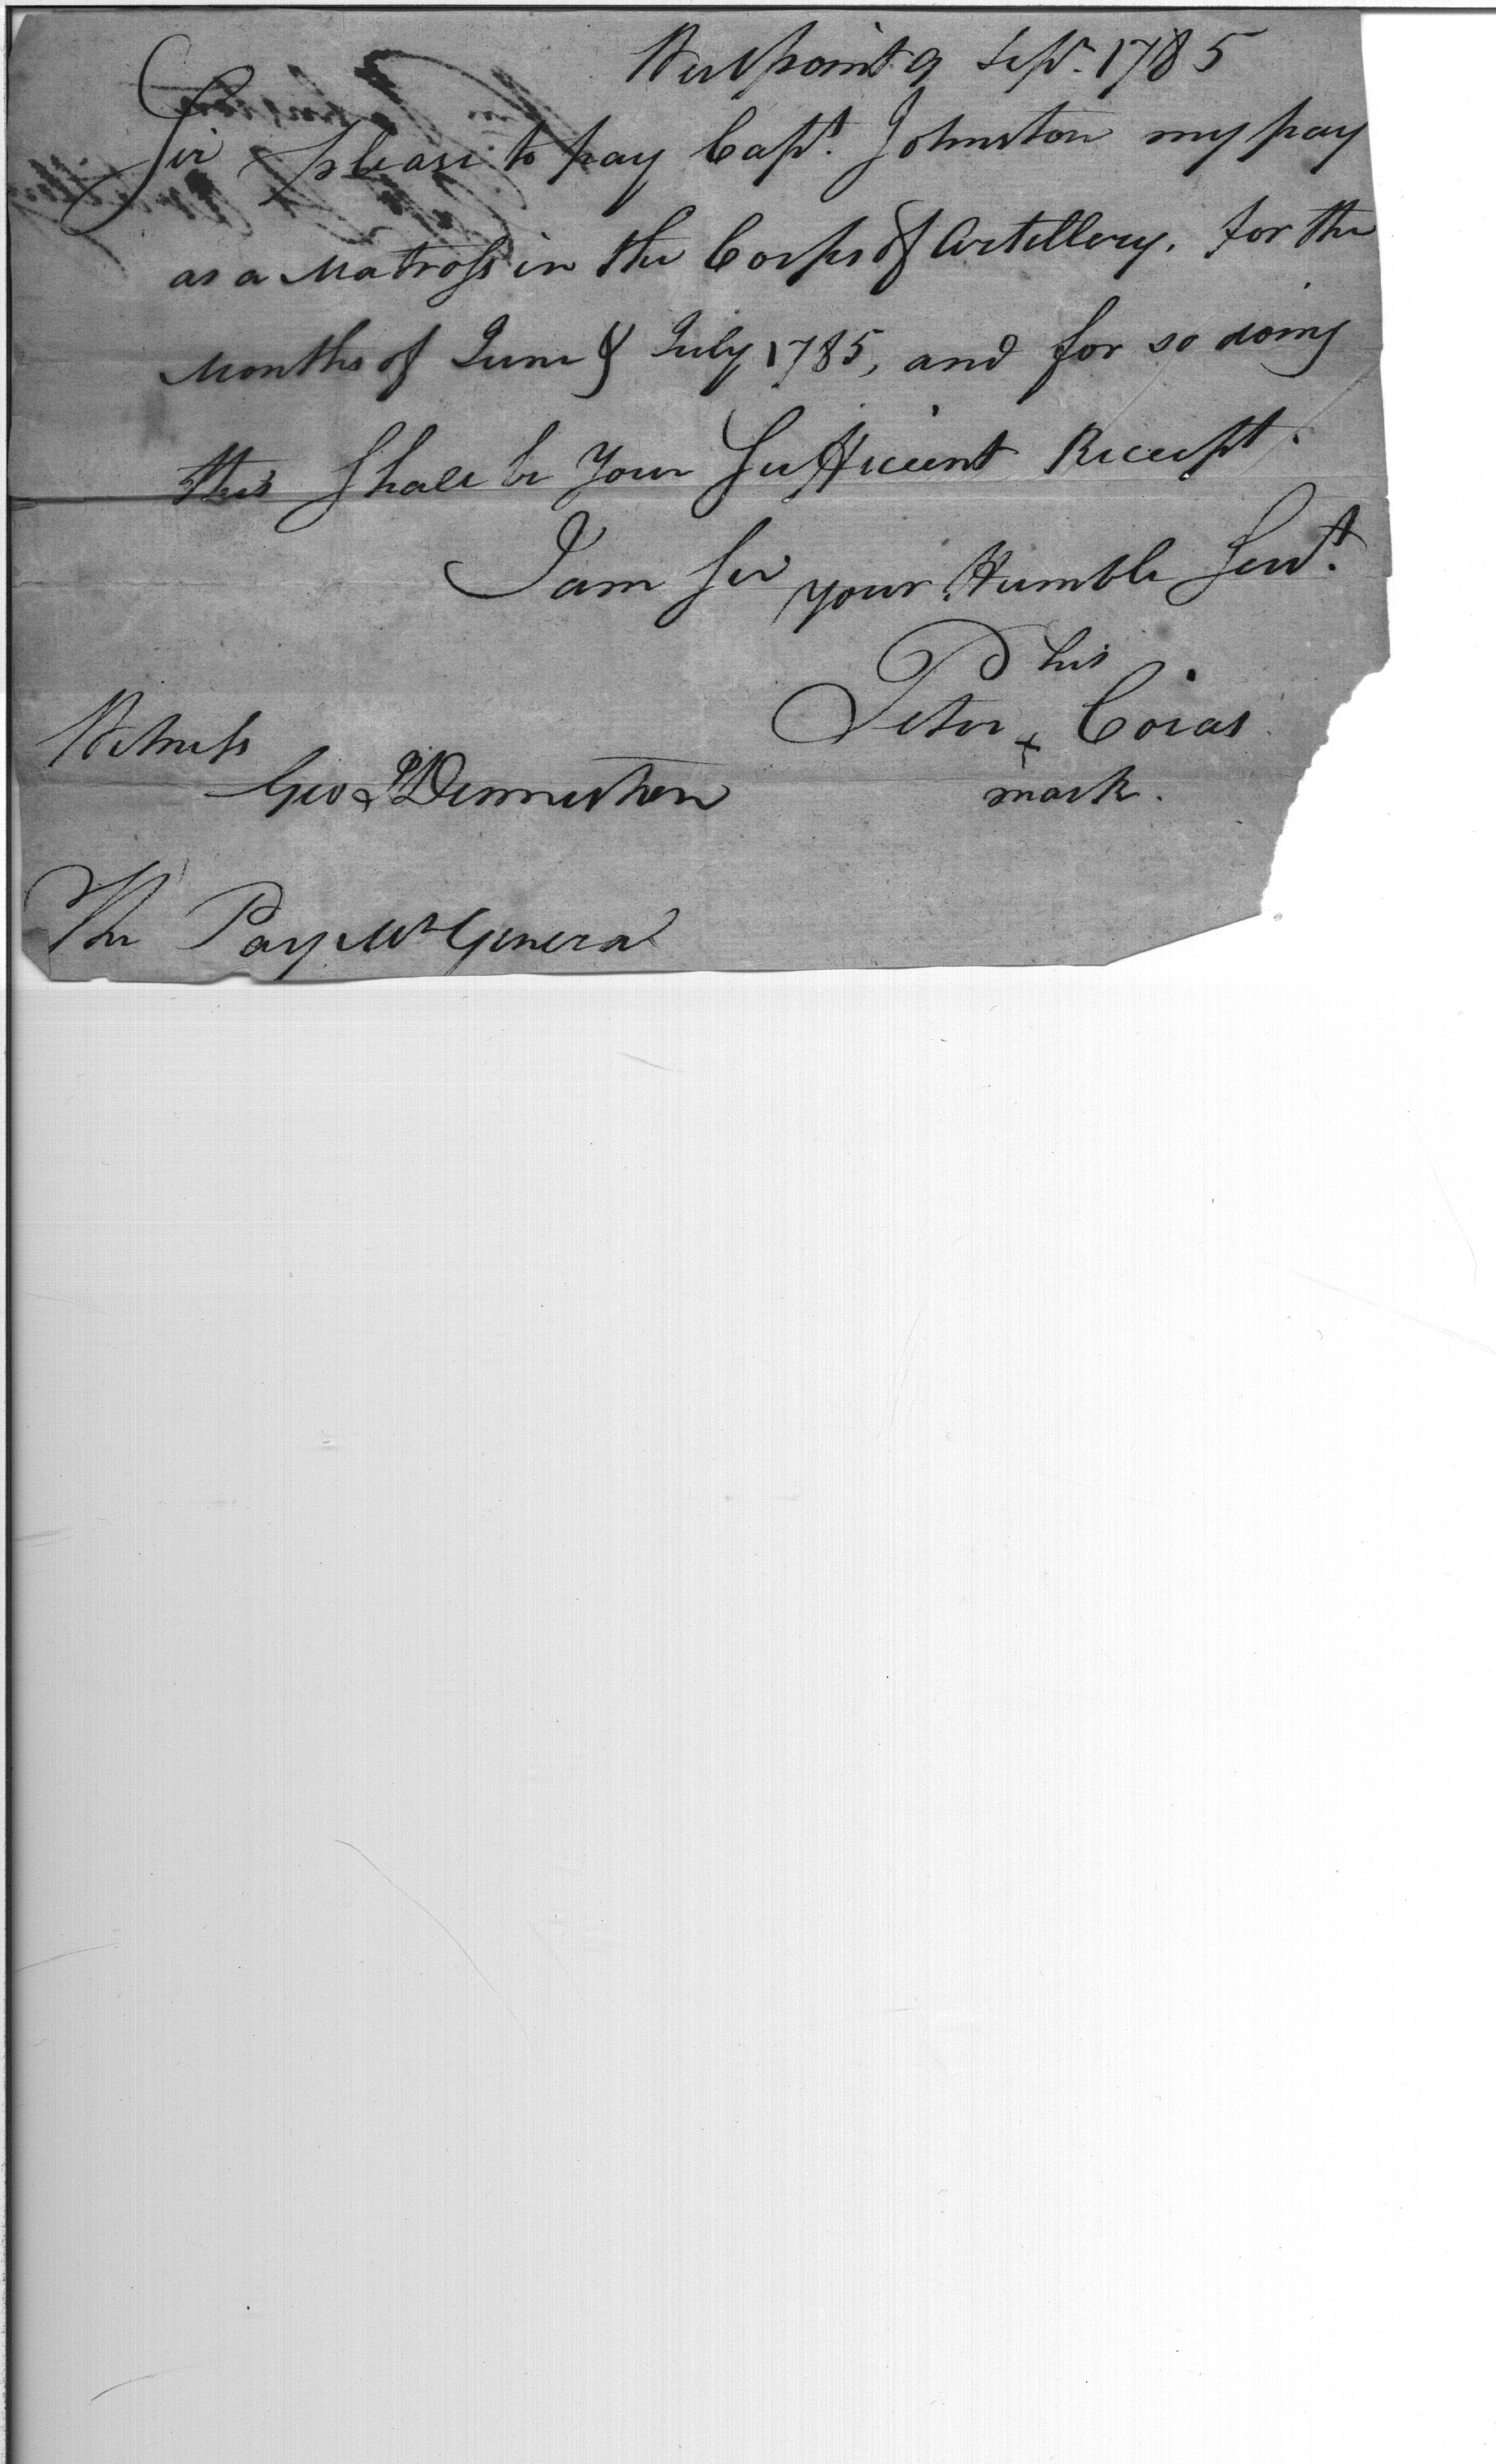 Westpoint 9 Sept. 1785
Sir please to pay Capt. Johnston my pay
as a Matross in the Corps of Artillery, for the
Months of June & July 1785, and for so doing
this Shall be Your Sufficient Receipt.
I am Sir your Humble Servt.
his
Peter x Coras
mark.
Witness
Geo Denniston
The Pay Mr General